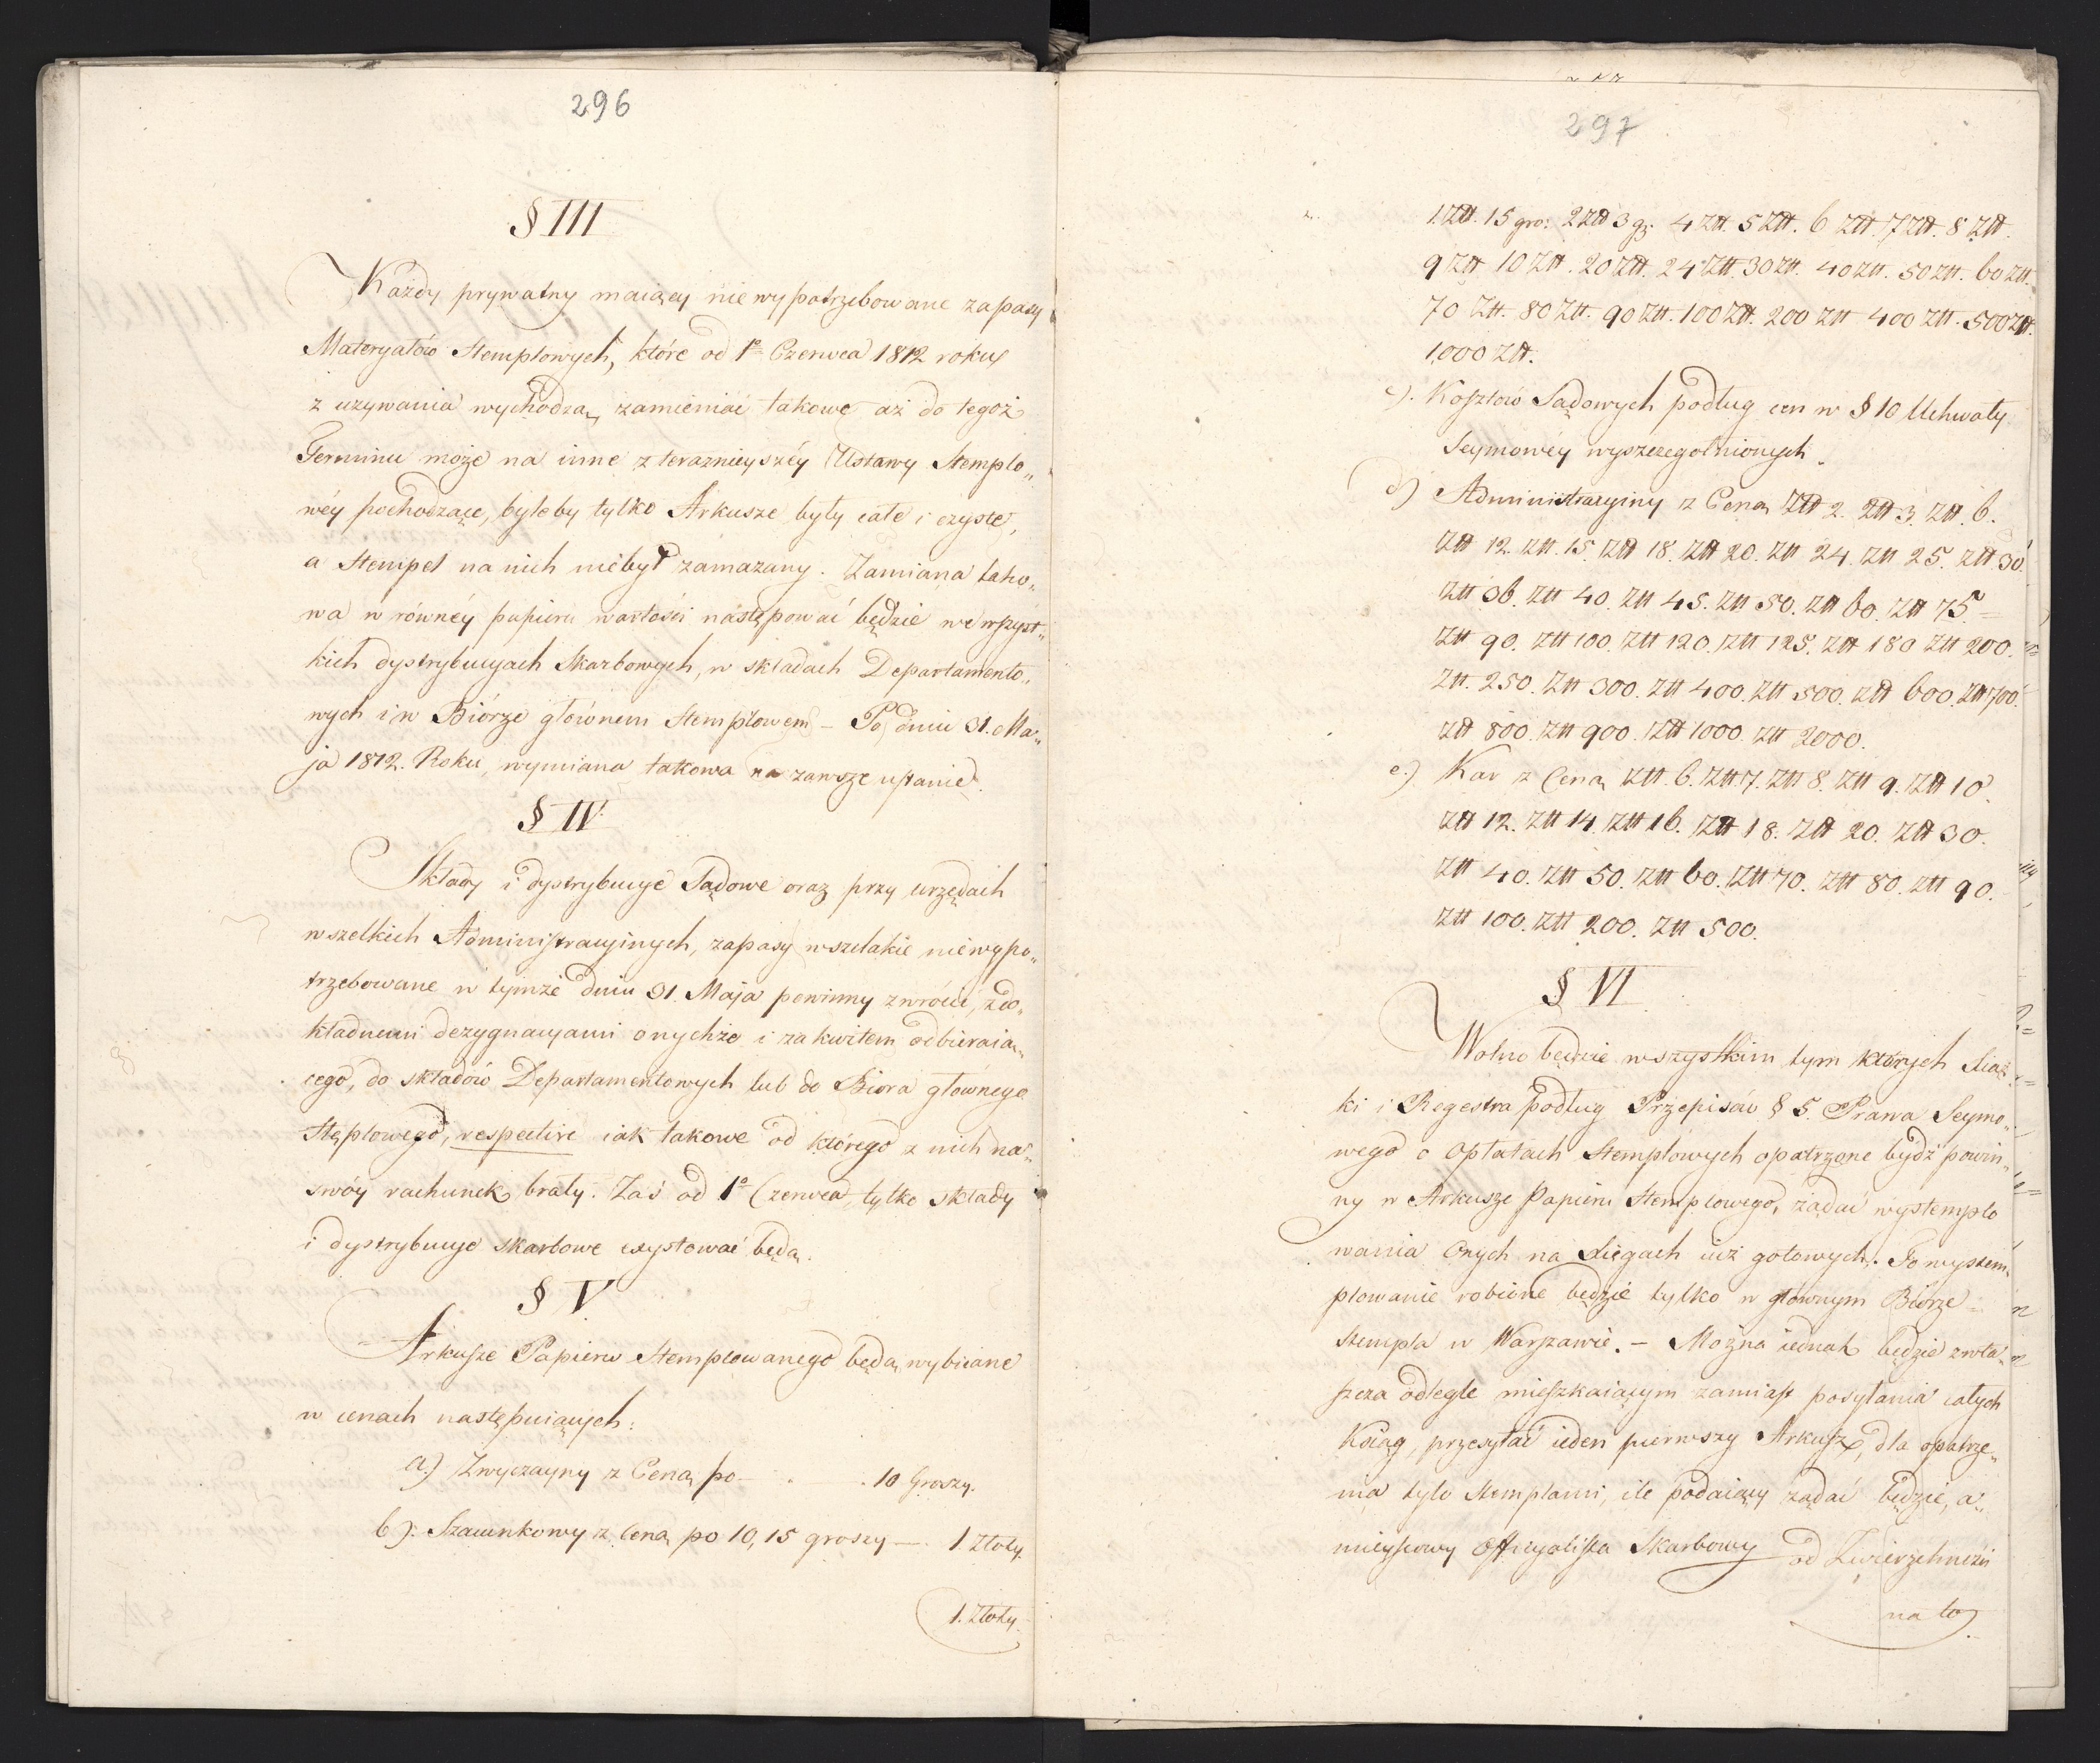 296
§ III
Każdy prywatny maiący niewypotrzebowane zapasy
Materyałów Stemplowych, które od 1º Czerwca 1812 roku
z używania wychodzą, zamieniać takowe aż do tegoż
Terminu może na inne z teraznieyszéy Ustawy Stemplo„
wéy pochodzące, byleby tylko Arkusze były całe i czyste,
a Stempel na nich niebył zamazany. Zamiana tako„
wa w równéy papieru wartości następować będzie we wszyst„
kich dystrybucyach Skarbowych, w składach Departamento„
wych i w Biórze głównem Stemplowem – Po dniu 31. Ma„
ja 1812. Roku, wymiana takowa na zawsze ustanie.
§ IV
Składy i dystrybucye Sądowe oraz przy urzędach
wszelkich Administracyinych, zapasy wszelakie niewypo„
trzebowane w tymże dniu 31. Maja powinny zwrócić, z do„
kładnemi dezygnacyami onychże i za kwitem odbieraią„
cego, do składów Departamentowych lub do Bióra głównego
Stęplowego, respective iak takowe od którego z nich na„
swóy rachunek brały. Zaś od 1º Czerwca, tylko składy
i dystrybucye skarbowe exystować będą.
§ V
Arkusze Papieru Stemplowanego będą wybiiane
w cenach następuiących:
a.) Zwyczayny z Ceną po — . — . 10 Groszy.
b). Szacunkowy z Ceną po 10, 15 groszy —. 1. Złoty.
1. Złoty.
297
1. Złł. 15 gro: 2 Złł 3 gr. 4 Złł. 5 Złł. 6 Złł. 7 Złł. 8 Złł.
9 Złł 10 Złł. 20 Złł. 24 Złł. 30 Złł. 40 Złł. 50 Złł. 60 Złł.
70 Złł. 80 Złł. 90 Złł. 100 Złł. 200 Złł 400 Złł. 500 Złł.
1,000 Złł.
c). Kosztów Sądowych podług cen w § 10 Uchwały
Seymowéy wyszczególnionych.
d) Administracyiny z Ceną Złł 2. Złł 3. Złł. 6.
Złł 12. Złł. 15. Złł 18. Złł 20. Złł 24. Złł 25. Złł. 30.
Złł 36. Złł 40. Złł 45. Złł 50. Złł 60. Złł 75. =
Złł 90. Złł 100. Złł 120. Złł 125. Złł 180 Złł 200.
Złł. 250. Złł 300. Złł 400. Złł 500. Złł 600. Złł 700.
Złł 800. Złł 900. Złł 1000. Złł 2000.
e.) Kar z Ceną Złł. 6. Złł 7. Złł 8. Złł 9. Złł 10.
Złł 12. Złł 14. Złł 16. Złł 18. Złł 20. Złł 30.
Złł 40. Złł 50. Złł 60. Złł 70. Złł 80. Złł 90.
Złł 100. Złł 200. Złł 500.
§ VI
Wolno będzie wszystkim tym których Xiąż
ki i Regestra podług Przepisów § 5. Prawa Seymo„
wego o Opłatach Stemplowych opatrzone bydź powin„
ny w Arkusze Papieru Stemplowego, żądać wystemplo
wania Onych na Xięgach iuż gotowych. To wystem„
plowanie robione będzie tylko w głównym Biórze
Stempla w Warszawie. – Można iednak będzie zwła„
szcza odlegle mieszkaiącym zamiast posyłania całych
Ksiąg, przesyłać ieden pierwszy Arkusz, dla opatrze„
nia tylo Stemplami, ile podaiący żądać będzie, a„
mieyscowy Officyalista Skarbowy od Zwierzchności
na to